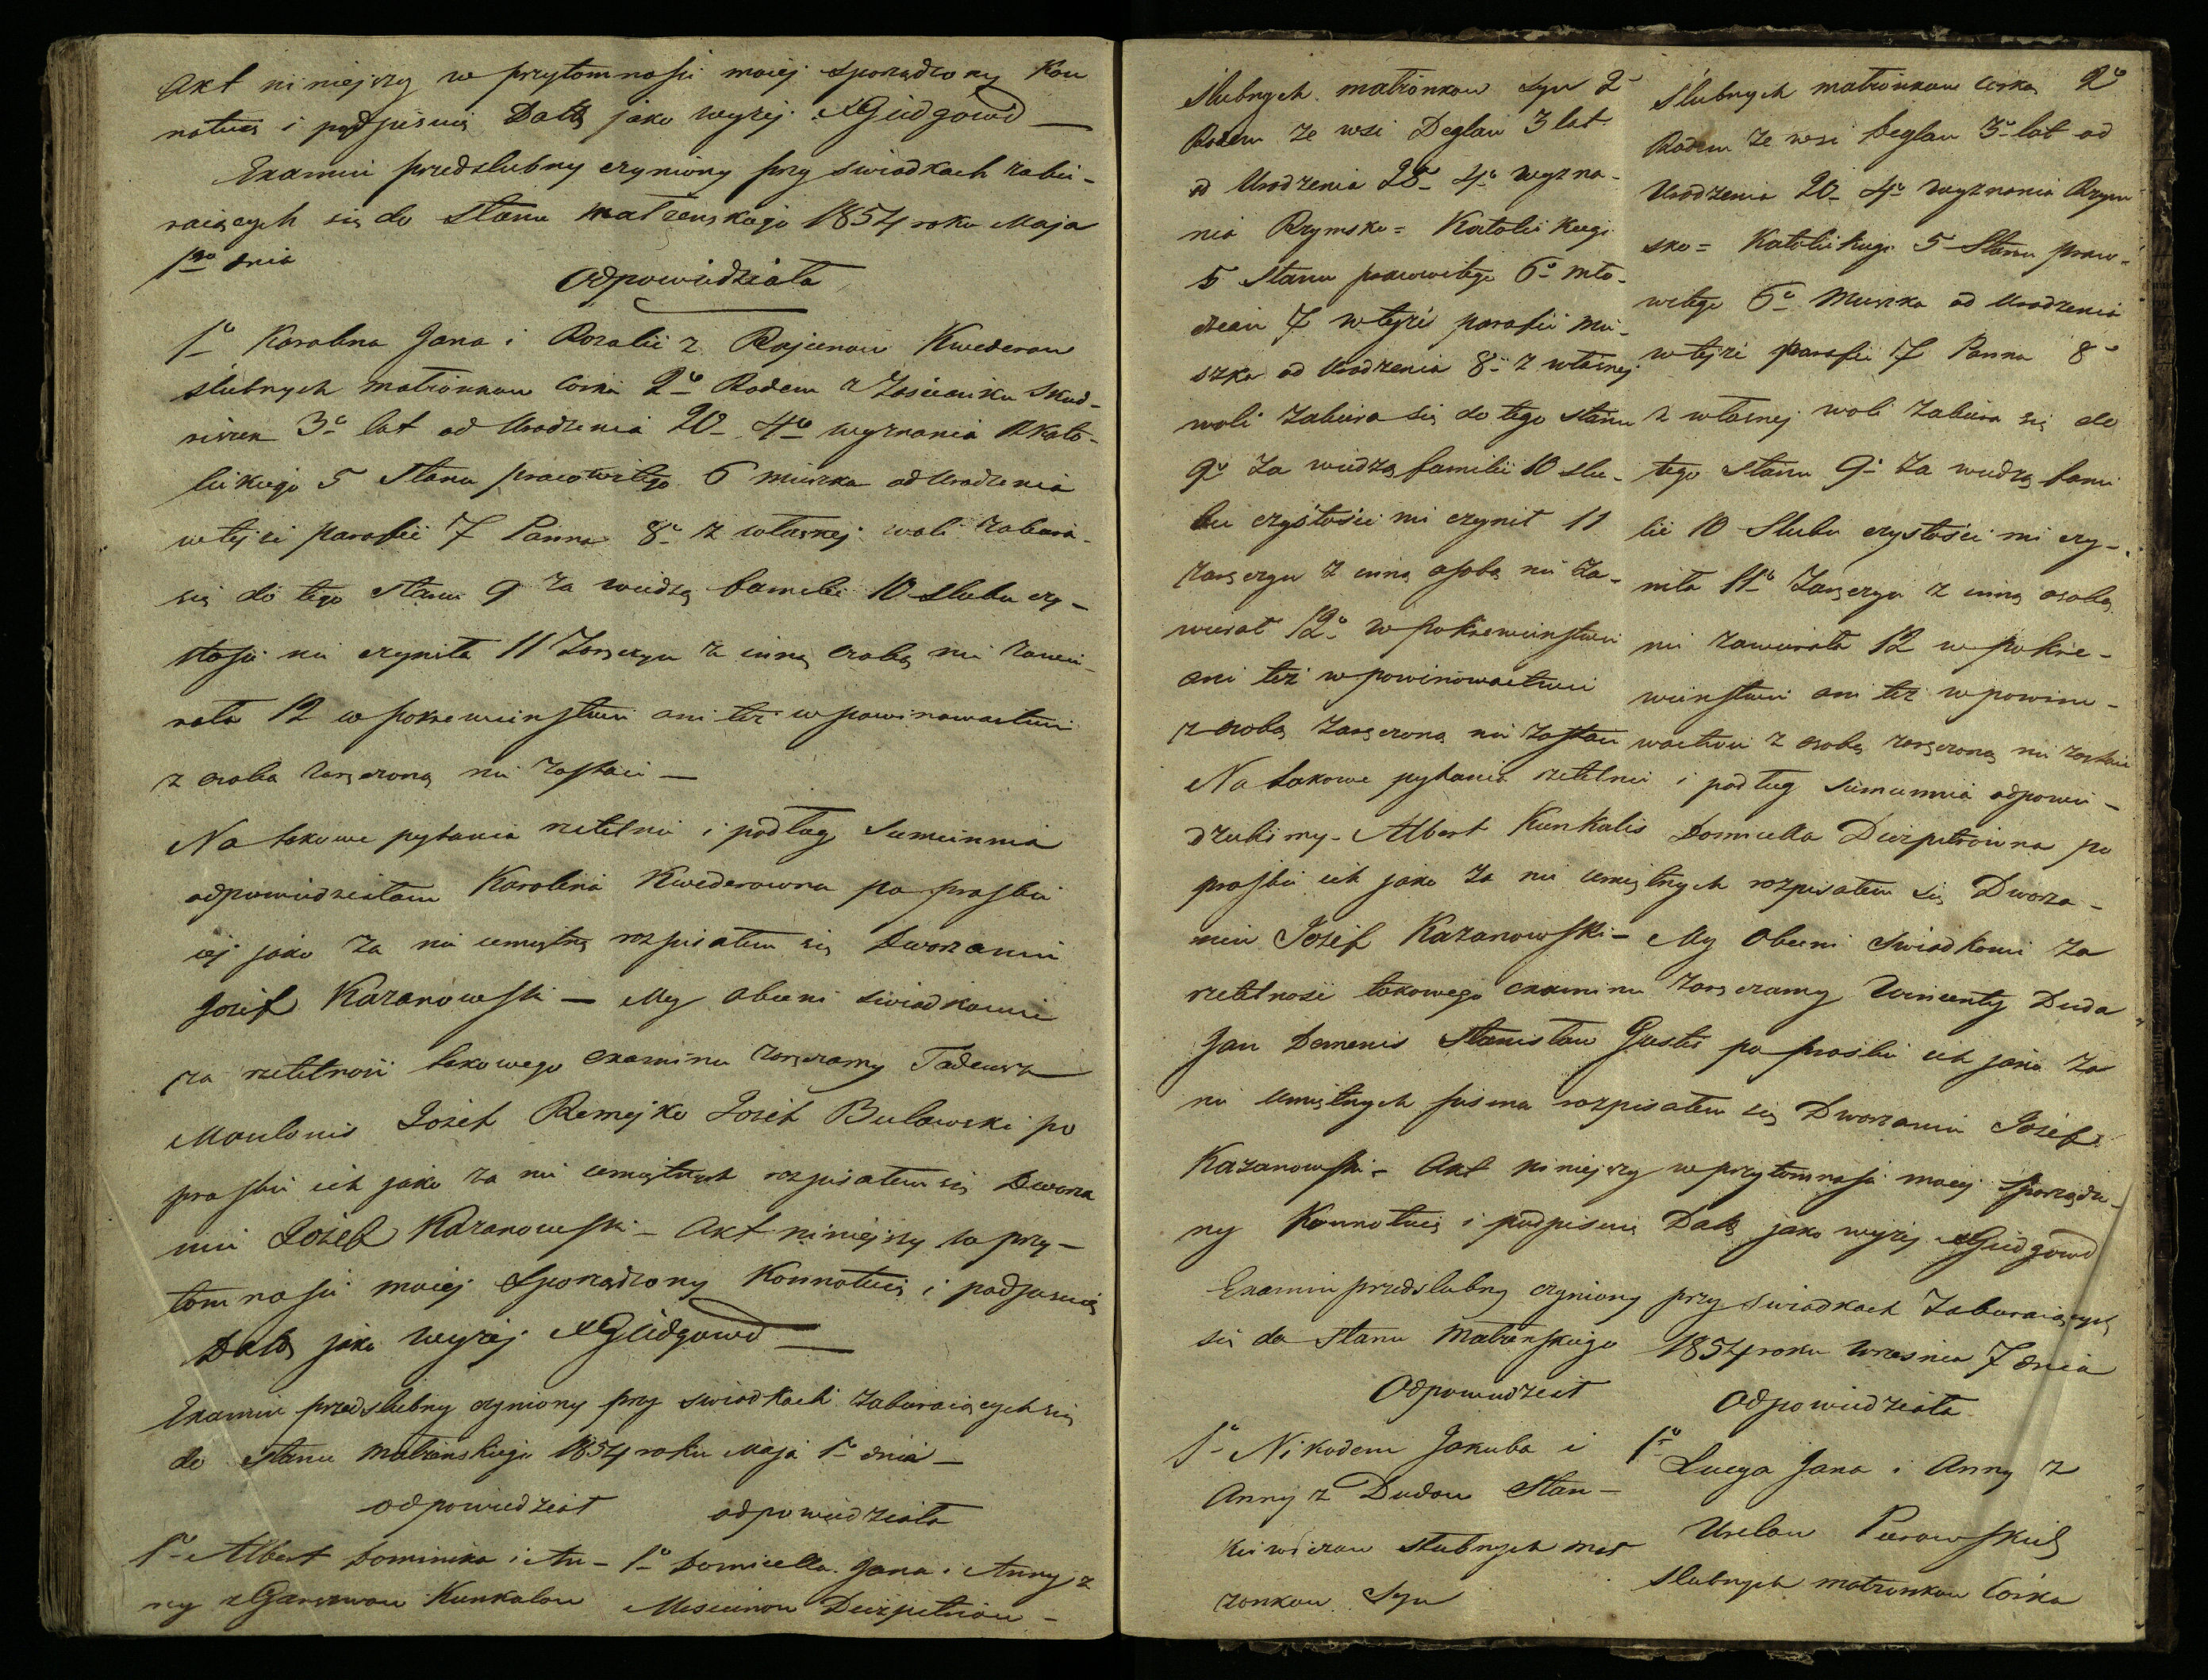 Akt niniejszy w przytomnosci moiej sporządzony Kon
notuię i podpisuię Datą jako wyżej
Examin przedslubny czyniony przy swiadkach zabie-
raiących się do Stanu małzenskiego 1854 roku Maja
1go dnia
Odpowiedziała
1o Karolina Jana i Rozalii z Rajunow Kwederow
slubnych małżonkow corka 2o Rodem z Zascianku Skud-
3o lat od Urodzenia 20 4o wyznania Rkato-
lickiego 5 Stanu pracowitego 6 mieszka od Urodzenia
w tejże parafii 7 Panna 8o z własnej woli zabiera
się do tego stanu 9 za wiedzą familii 10 slubu czy-
stosci nie czyniła 11 Zaręczyn z inną osobą nie zawie-
rała 12 w pokrewienstwie ani też w powinowactwie
z osobą zaręczoną nie zostaie —
Na takowe pytania rzetelnie i podług Sumienia
odpowiedziałam Karolina Kwederowna po prosbie
iej jako za nie umiętną rozpisałem się Dworzanin
Jozef Kazanowski — My obecni swiadkowie
za rzetelnosc takowego examinu zaręczamy Tadeusz
Jozef Remejko Jozef Bulawski po
prosbie ich jako za nie umiętnych rozpisałem się Dworza
nin Jozef Kazanowski — Akt niniejszy w przy-
tomnosci moiej Sporządzony Konnotuię i podpisuię
Datą jako wyżej
Examin przedslubny czyniony przy swiadkach zabieraiących się
do Stanu małzenskiego 1854 roku Maja 1o dnia —
odpowiedział odpowiedziała
1o Albert Dominika i An-
ny z Kunkalow
1o Domicella Jana i Anny z
slubnych małżonkow syn 2o
Rodem ze wsi Deglan 3 lat
od Urodzenia 28 4o wyzna-
nia Rzymsko= Katolickiego
5 Stanu pracowitego 6o mło-
dzian 7 w tejże parafii mie-
szka od Urodzenia 8o z własnej
woli zabiera się do tego stanu
9o za wiedzą familii 10 slu-
bu czystosci nie czynił 11
zaręczyn z inną osobą nie za-
wierał 12o w pokrewienstwie
ani też w powinowactwie
z osobą zaręczoną nie zostaie
slubnych małżonkow corka 2o
Rodem ze wsi Deglan 3o lat od
Urodzenia 20 4o wyznania Rzym
sko= Katolickiego 5 Stanu praco-
witego 6o Mieszka od Urodzenia
w tejże parafii 7 Panna 8o
z własnej woli zabiera się do
tego stanu 9o za wiedzą fami
lii 10 Slubu czystosci nie czy-
niła 11o Zaręczyn z inną osobą
nie zawierała 12 w pokre-
wienstwie ani też w powino-
wactwie z osobą zaręczoną nie zostaie
Na takowe pytania rzetelnie i podług Sumienia odpowie-
dzielismy — Albert Kunkalis Domicella po
prosbie ich jako za nie umiętnych rozpisałem się Dworza-
nin Jozef Kazanowski — My Obecni swiadkowie za
rzetelnosc takowego examinu zaręczamy Wincenty Duda
Jan Demenis Stanisław po prosbie ich jako za
nie umiętnych pisma rozpisałem się Dworzanin Jozef
Kazanowski — Akt niniejszy w przytomnosci moiej sporządzo-
ny Konnotuię i podpisuię Datą jako wyżej
Examin przedslubny czyniony przy swiadkach Zabieraiących
się do Stanu Małzenskiego 1854 roku Wrzesnia 7 dnia
Odpowiedział Odpowiedziała
1o Nikodem Jakuba i
Anny z Dudow Stan-
slubnych mał
zonkow Syn
1o Łucya Jana i Anny z
slubnych małzonkow Corka